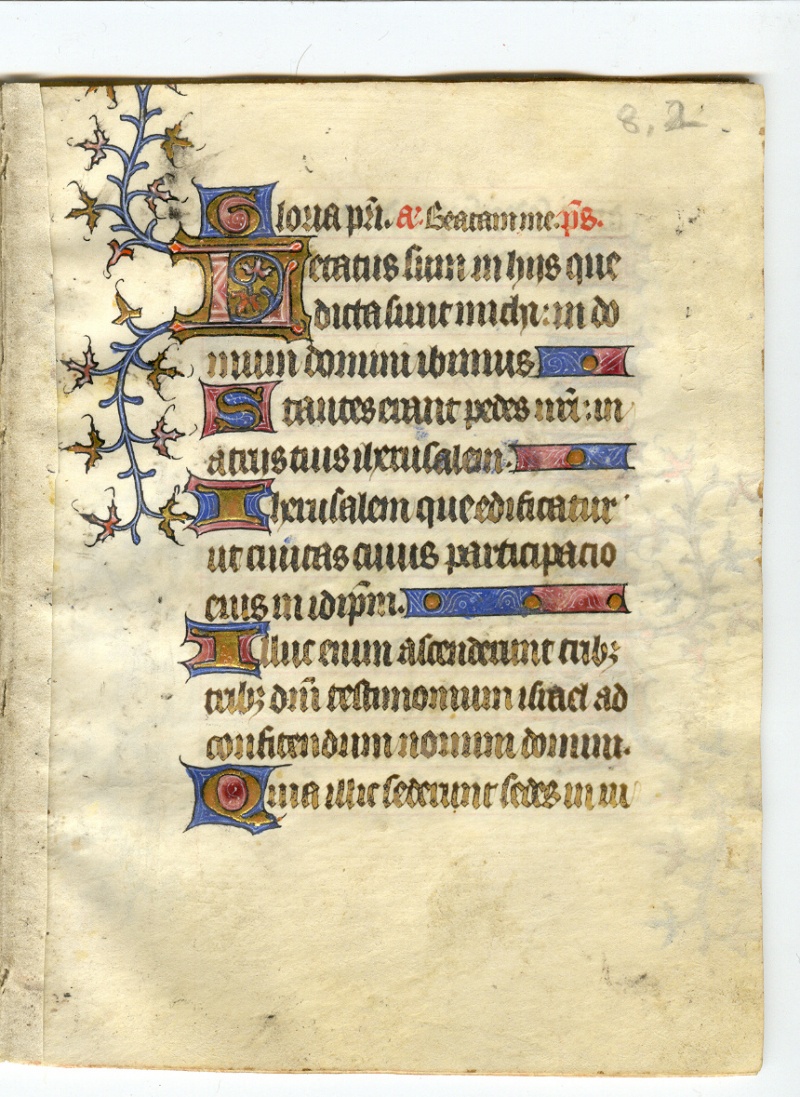 8, 2
Gloria pr̄i. aꝛ Beatam me. p̄s.
Letatus sum in hiis que
dicta sunt michi: in do
mum domini ibimus
Stantes erant pedes nr̄i: in
atriis tuis iherusalem.
Iherusalem que edificatur
ut civitas cuius participacio
eius in idip̄m.
Illuc enim ascenderunt tribꝫ
tribꝫ dn̄i testimonium israel ad
confitendum nomini domini.
Quia illic sederunt sedes in iu